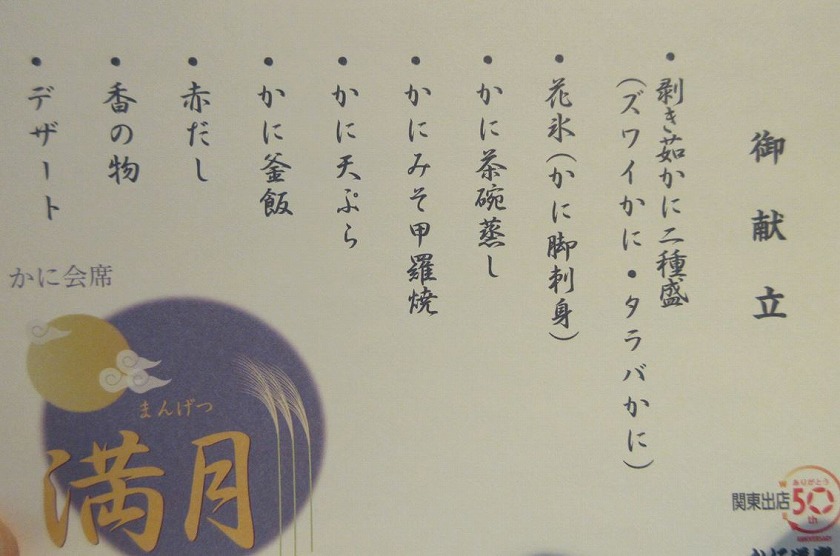 御献立
・剥き茹かに二種盛
(ズワイかに・タラバかに)
・花氷(かに脚刺身)
・かに茶碗蒸し
・かにみそ甲羅焼
・かに天ぷら
・かに釜飯
・赤だし
・香の物
・デザート
かに会席
まんげつ
満月
関東出店
ありがとう
50th
ANNIVERSARY